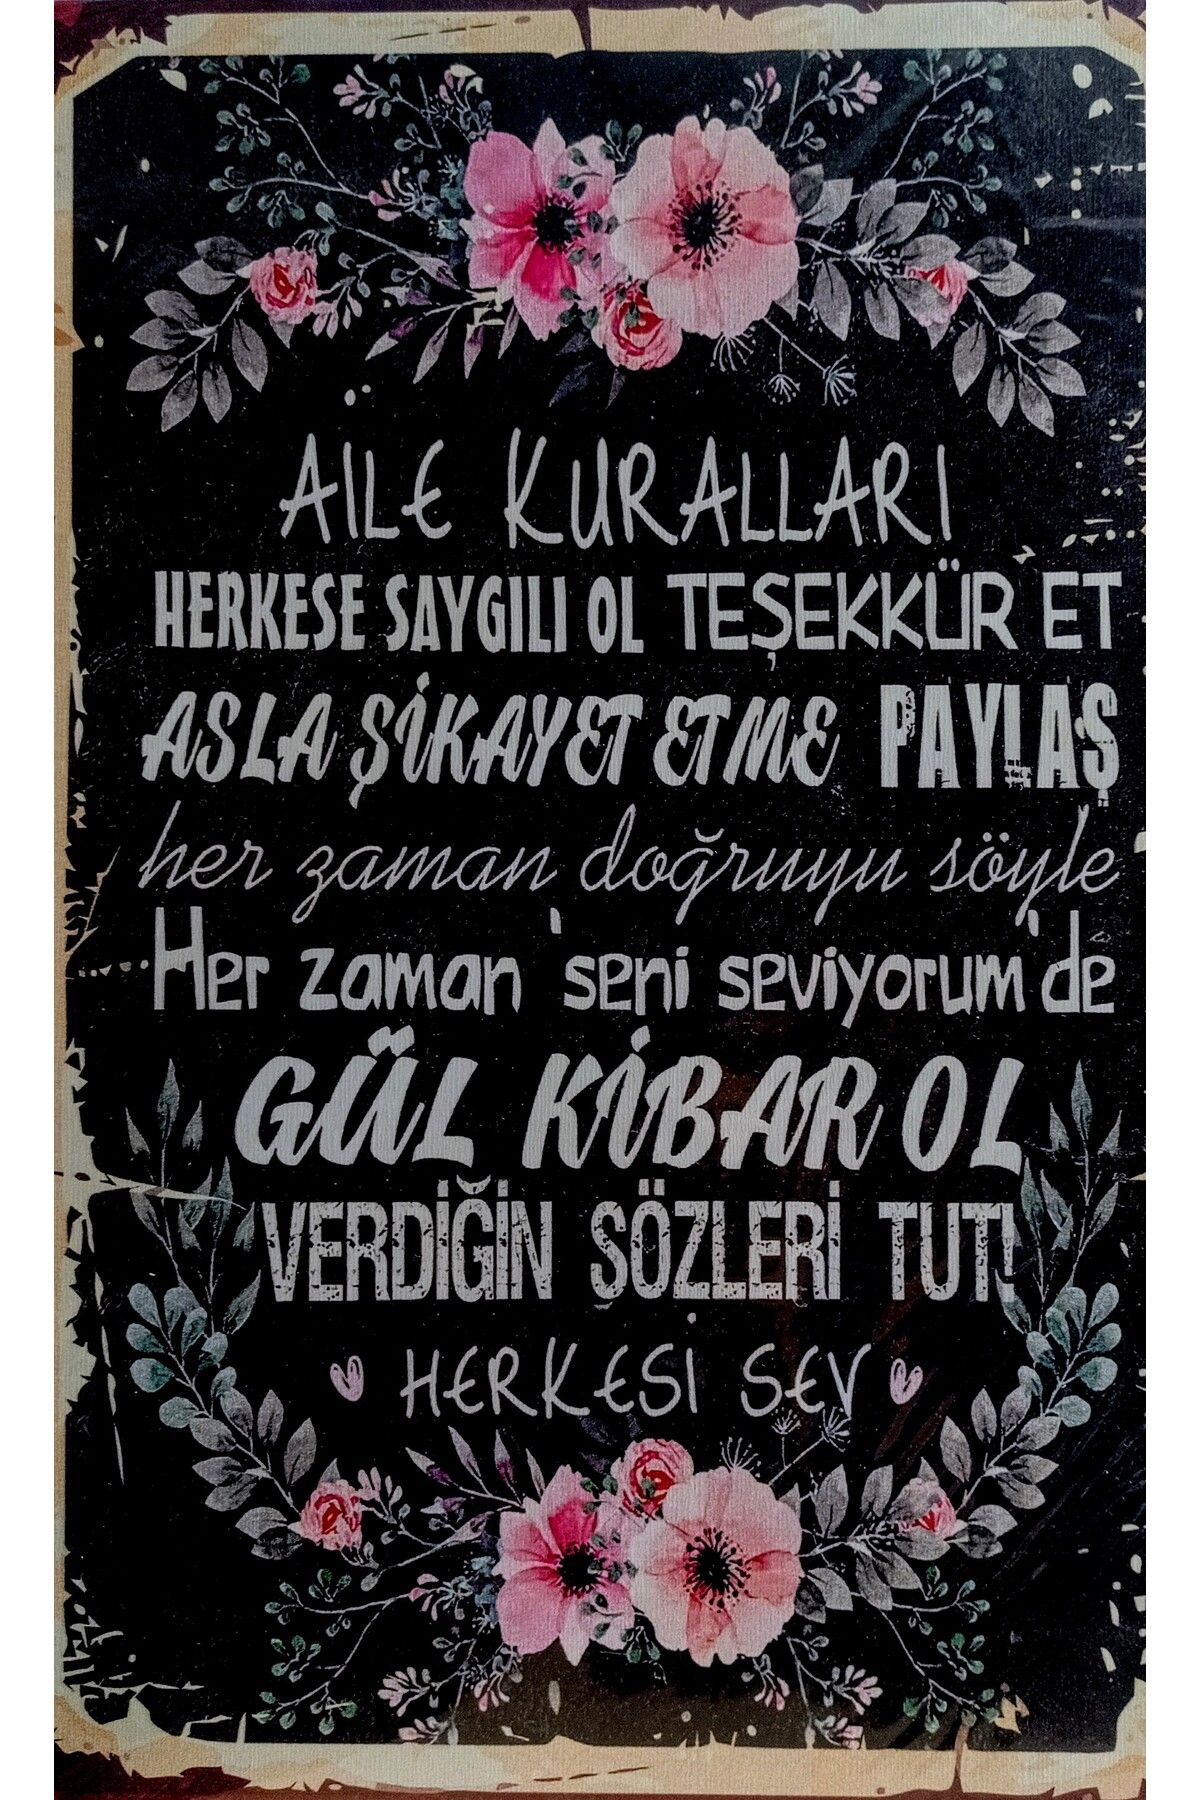 AILE KURALLARI
HERKESE SAYGILI OL TEŞEKKÜR ET
ASLA ŞİKAYET ETME PAYLAŞ
her zaman doğruyu söyle
Her zaman 'seni seviyorum' de
GÜL KİBAR OL
VERDİĞİN SÖZLERİ TUT!
HERKESİ SEV